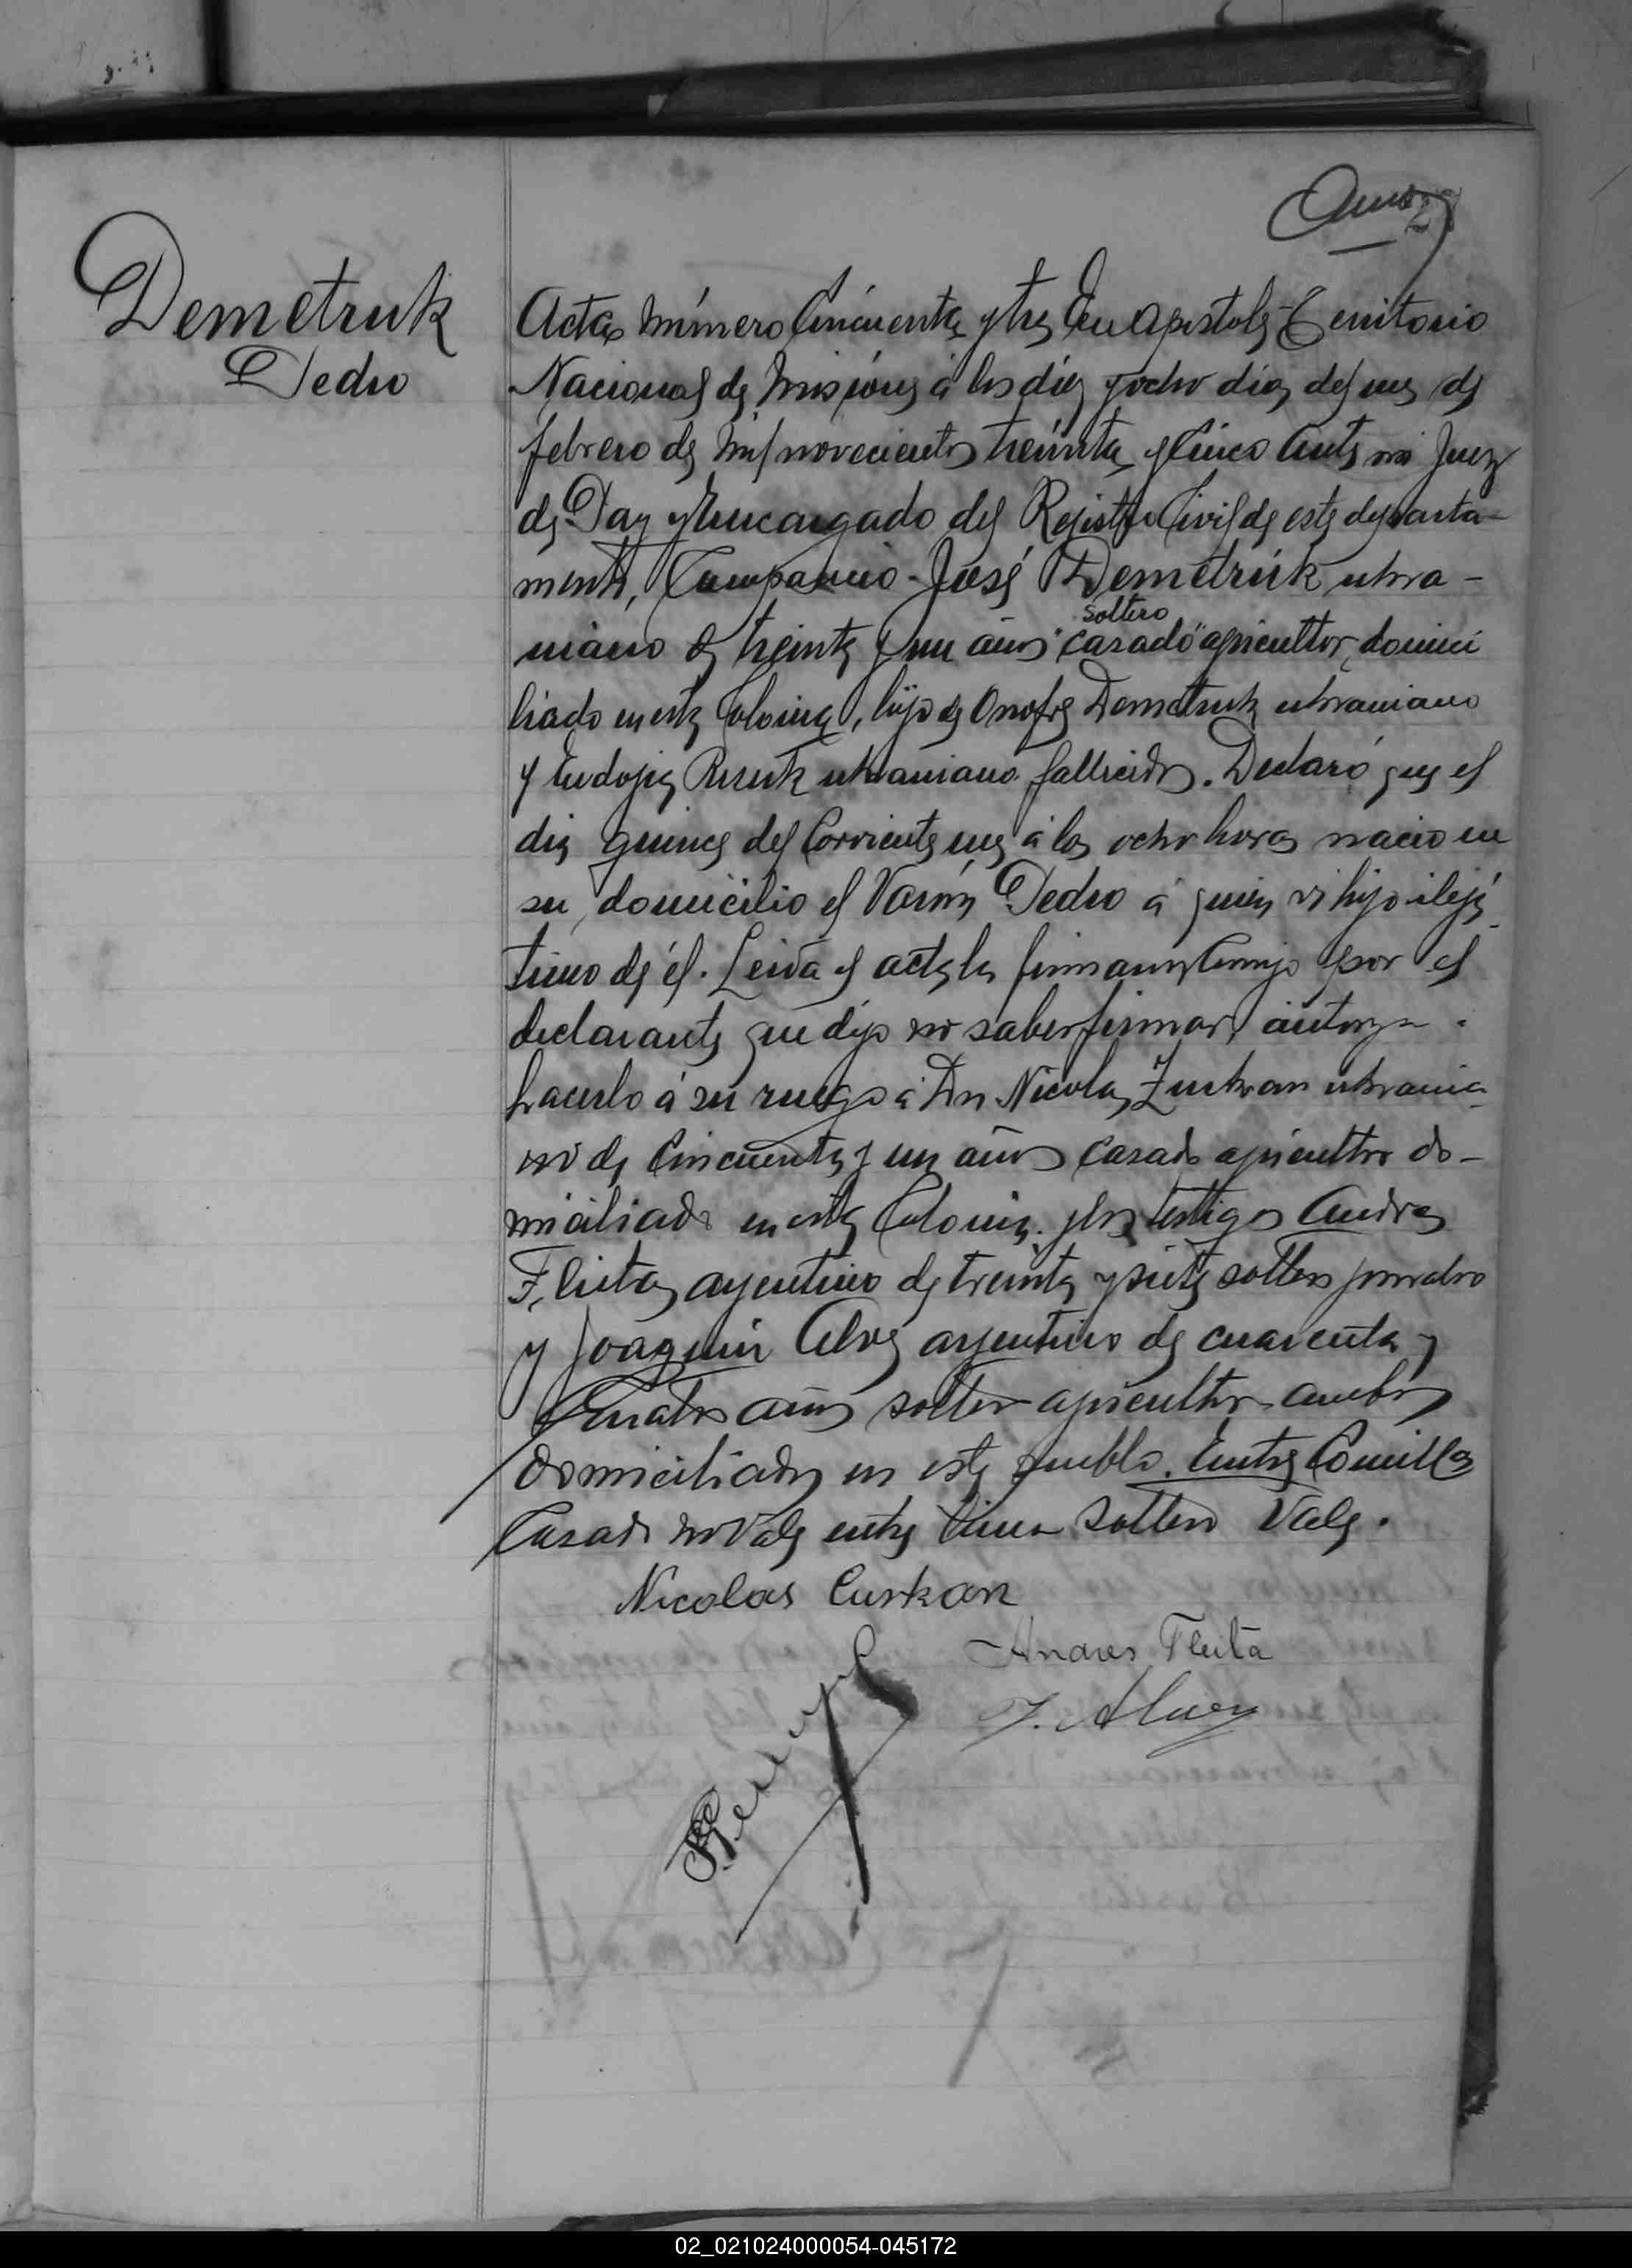 Demetruk
Pedro
Acta número Cincuenta y tres En Apostoles Territorio
Nacional de Misiones á los diez y ocho dias del mes de
febrero de mil novecientos treinta y cinco ante mi Juez
de Paz y Encargado del Rejistro Civil de este departa-
mento, Compareció José Demetruk ukra-
niano de treinta y un años "casado" agricultor, domici
soltero
liado en esta Colonia, hijo de Onofre Demetruk ukraniano
y Eudojia ukraniano fallecidos. Declaró que el
dia quince del Corriente mes á las ocho horas nacio en
su domicilio el Varón Pedro á quien vi hijo ilejí
timo de él. Leida el acta la firmaron conmigo por el
declarante que dijo no saber firmar, autoriza
hacerlo á su ruego á Dn Nicolas Zurkan ukrania
no de Cincuenta y un años Casado agricultor do-
miciliado en esta Colonia. y los testigos Andres
Fleita argentino de treinta y siete soltero jornalero
y Joaquin Alves argentino de cuarenta y
Cuatro años soltero agricultor ambos
domiciliados en este pueblo. Entre Comillas
Casado no Vale entre linea Soltero Vale.
Nicolas Curkan
Andres Fleita
J. Alvez
02_021024000054-045172